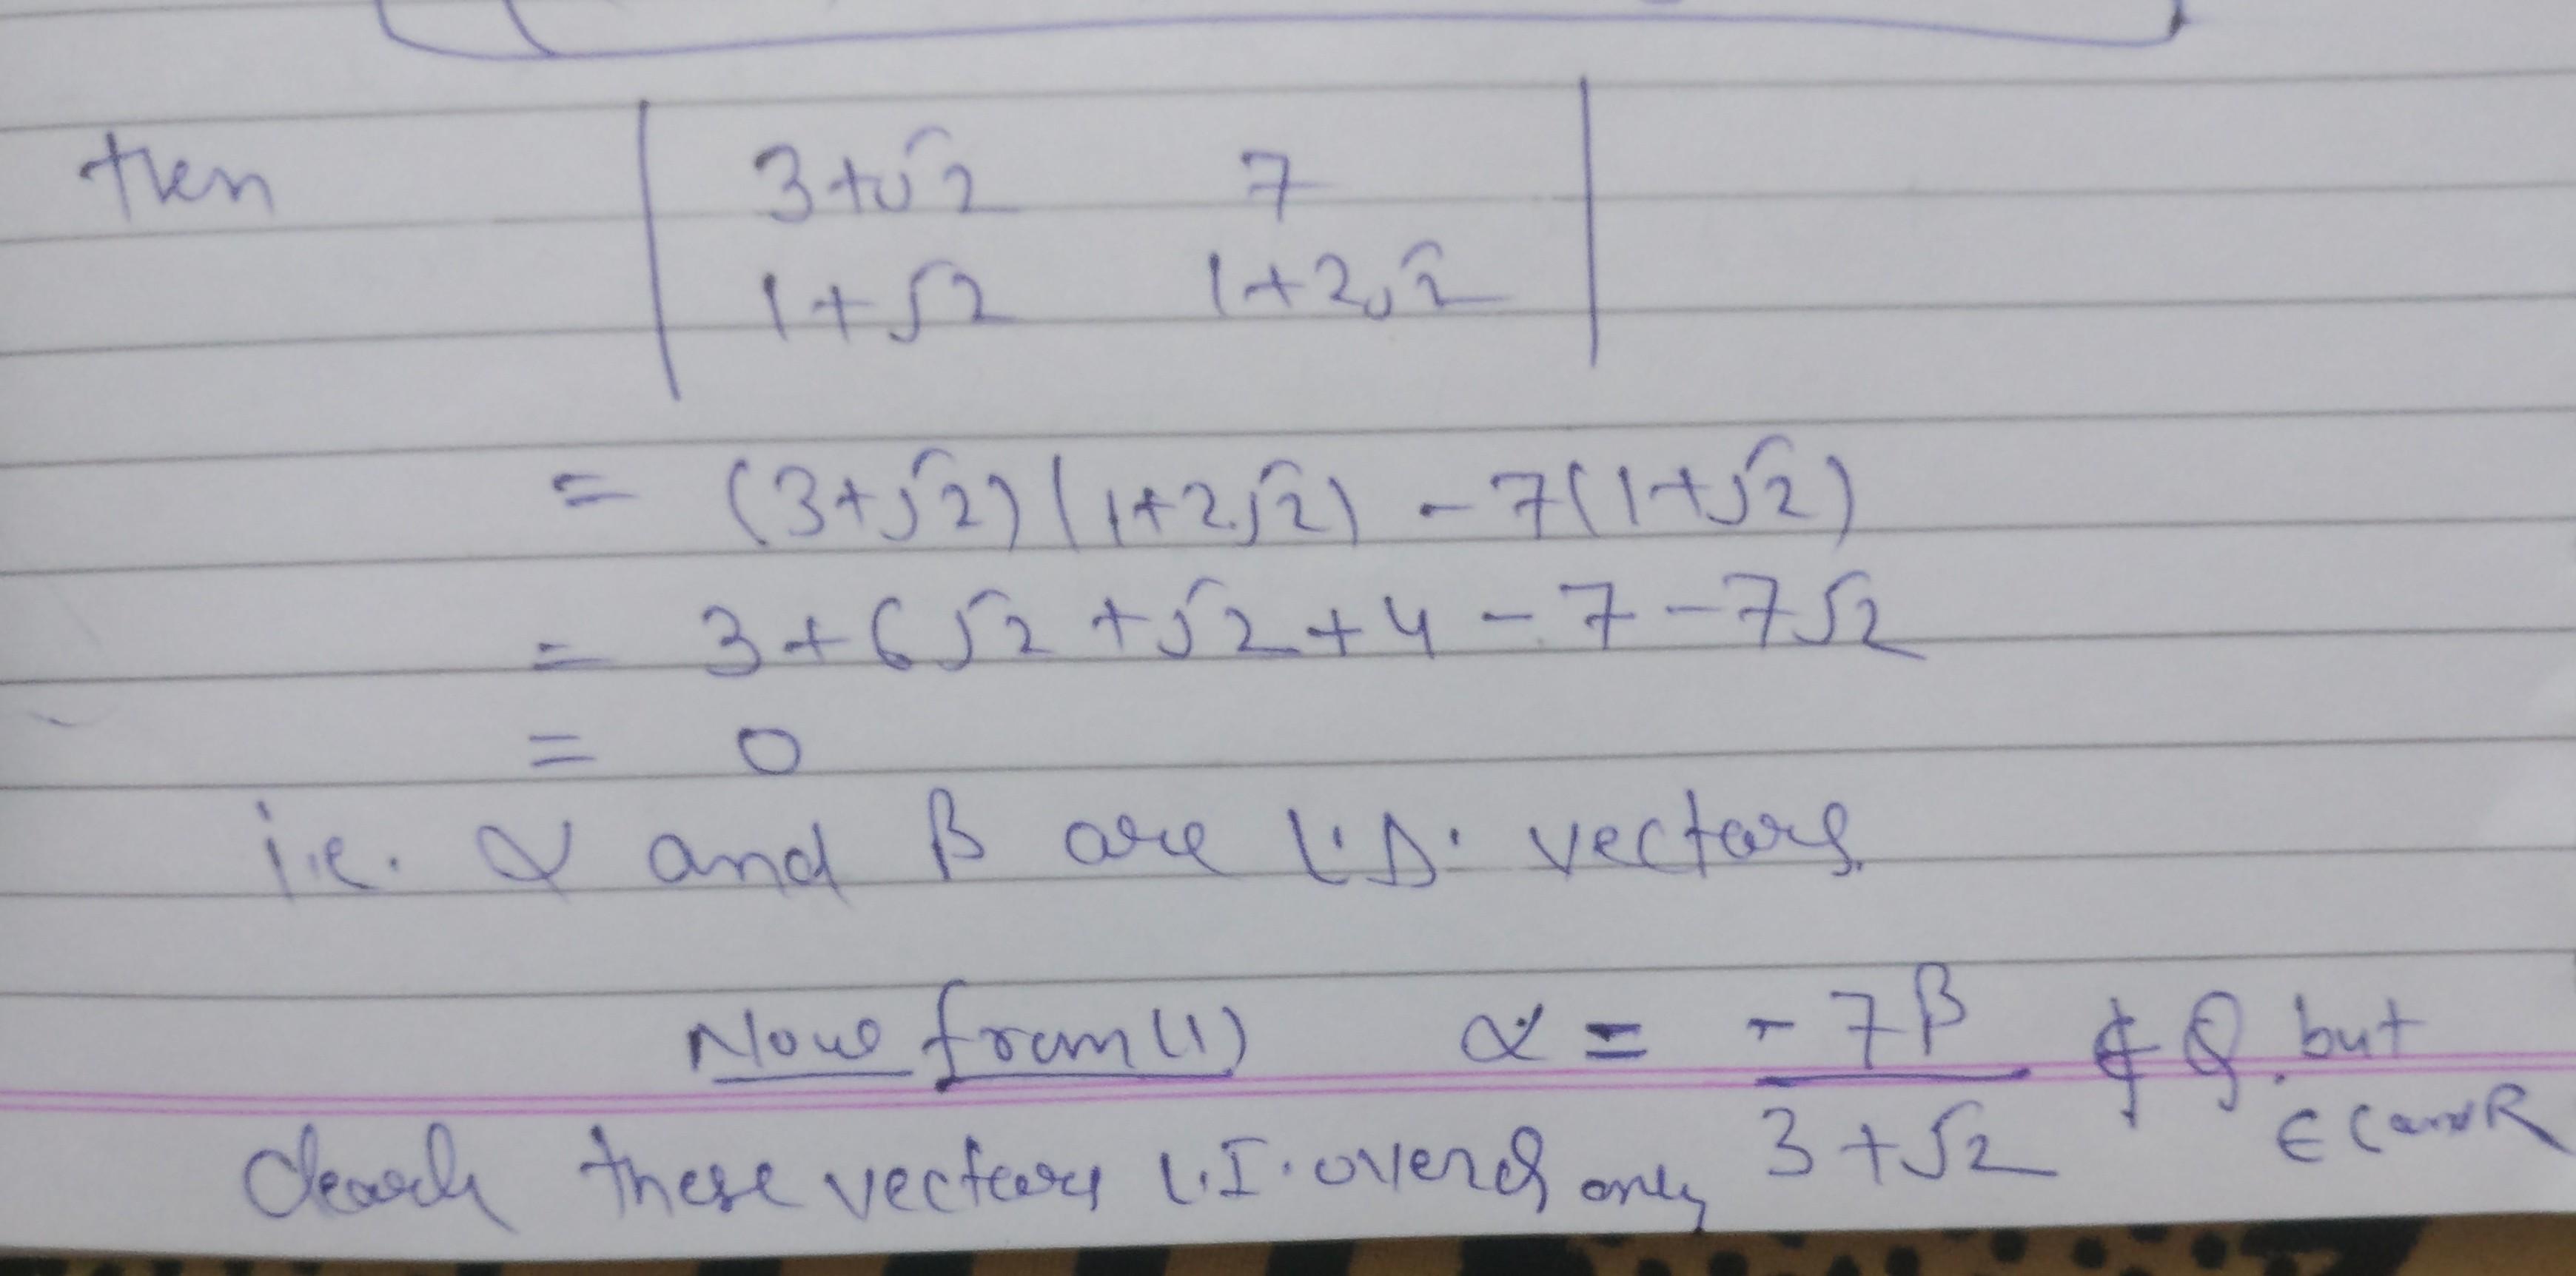 then | 3+√2 7 |
| 1+√2 1+2√2 |
= (3+√2)(1+2√2) - 7(1+√2)
= 3+6√2+√2+4-7-7√2
= 0
i.e. α and β are L.D. vectors.
Now from (1) α = -7β / 3+√2 ∉ Q. but ∈ C and R
these vectors L.I. over Q only